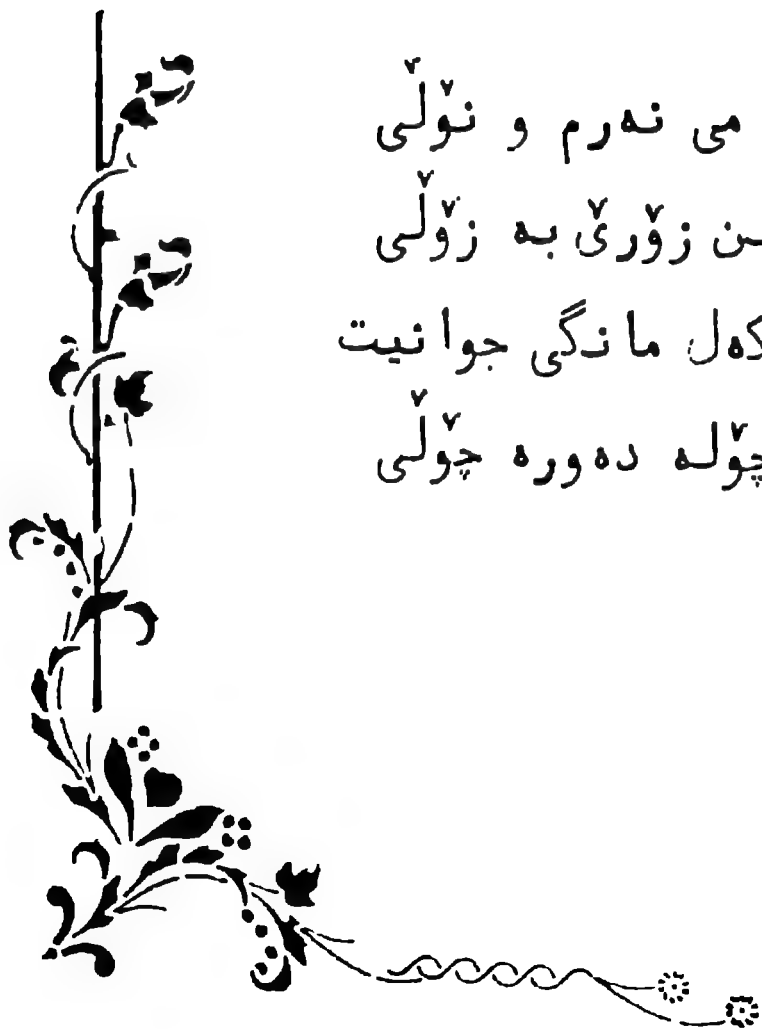 می نەرم و نۆڵی
ـن زۆرێ بە زۆڵی
کەل مانگی جوانیت
چۆلە دەورە چۆڵی